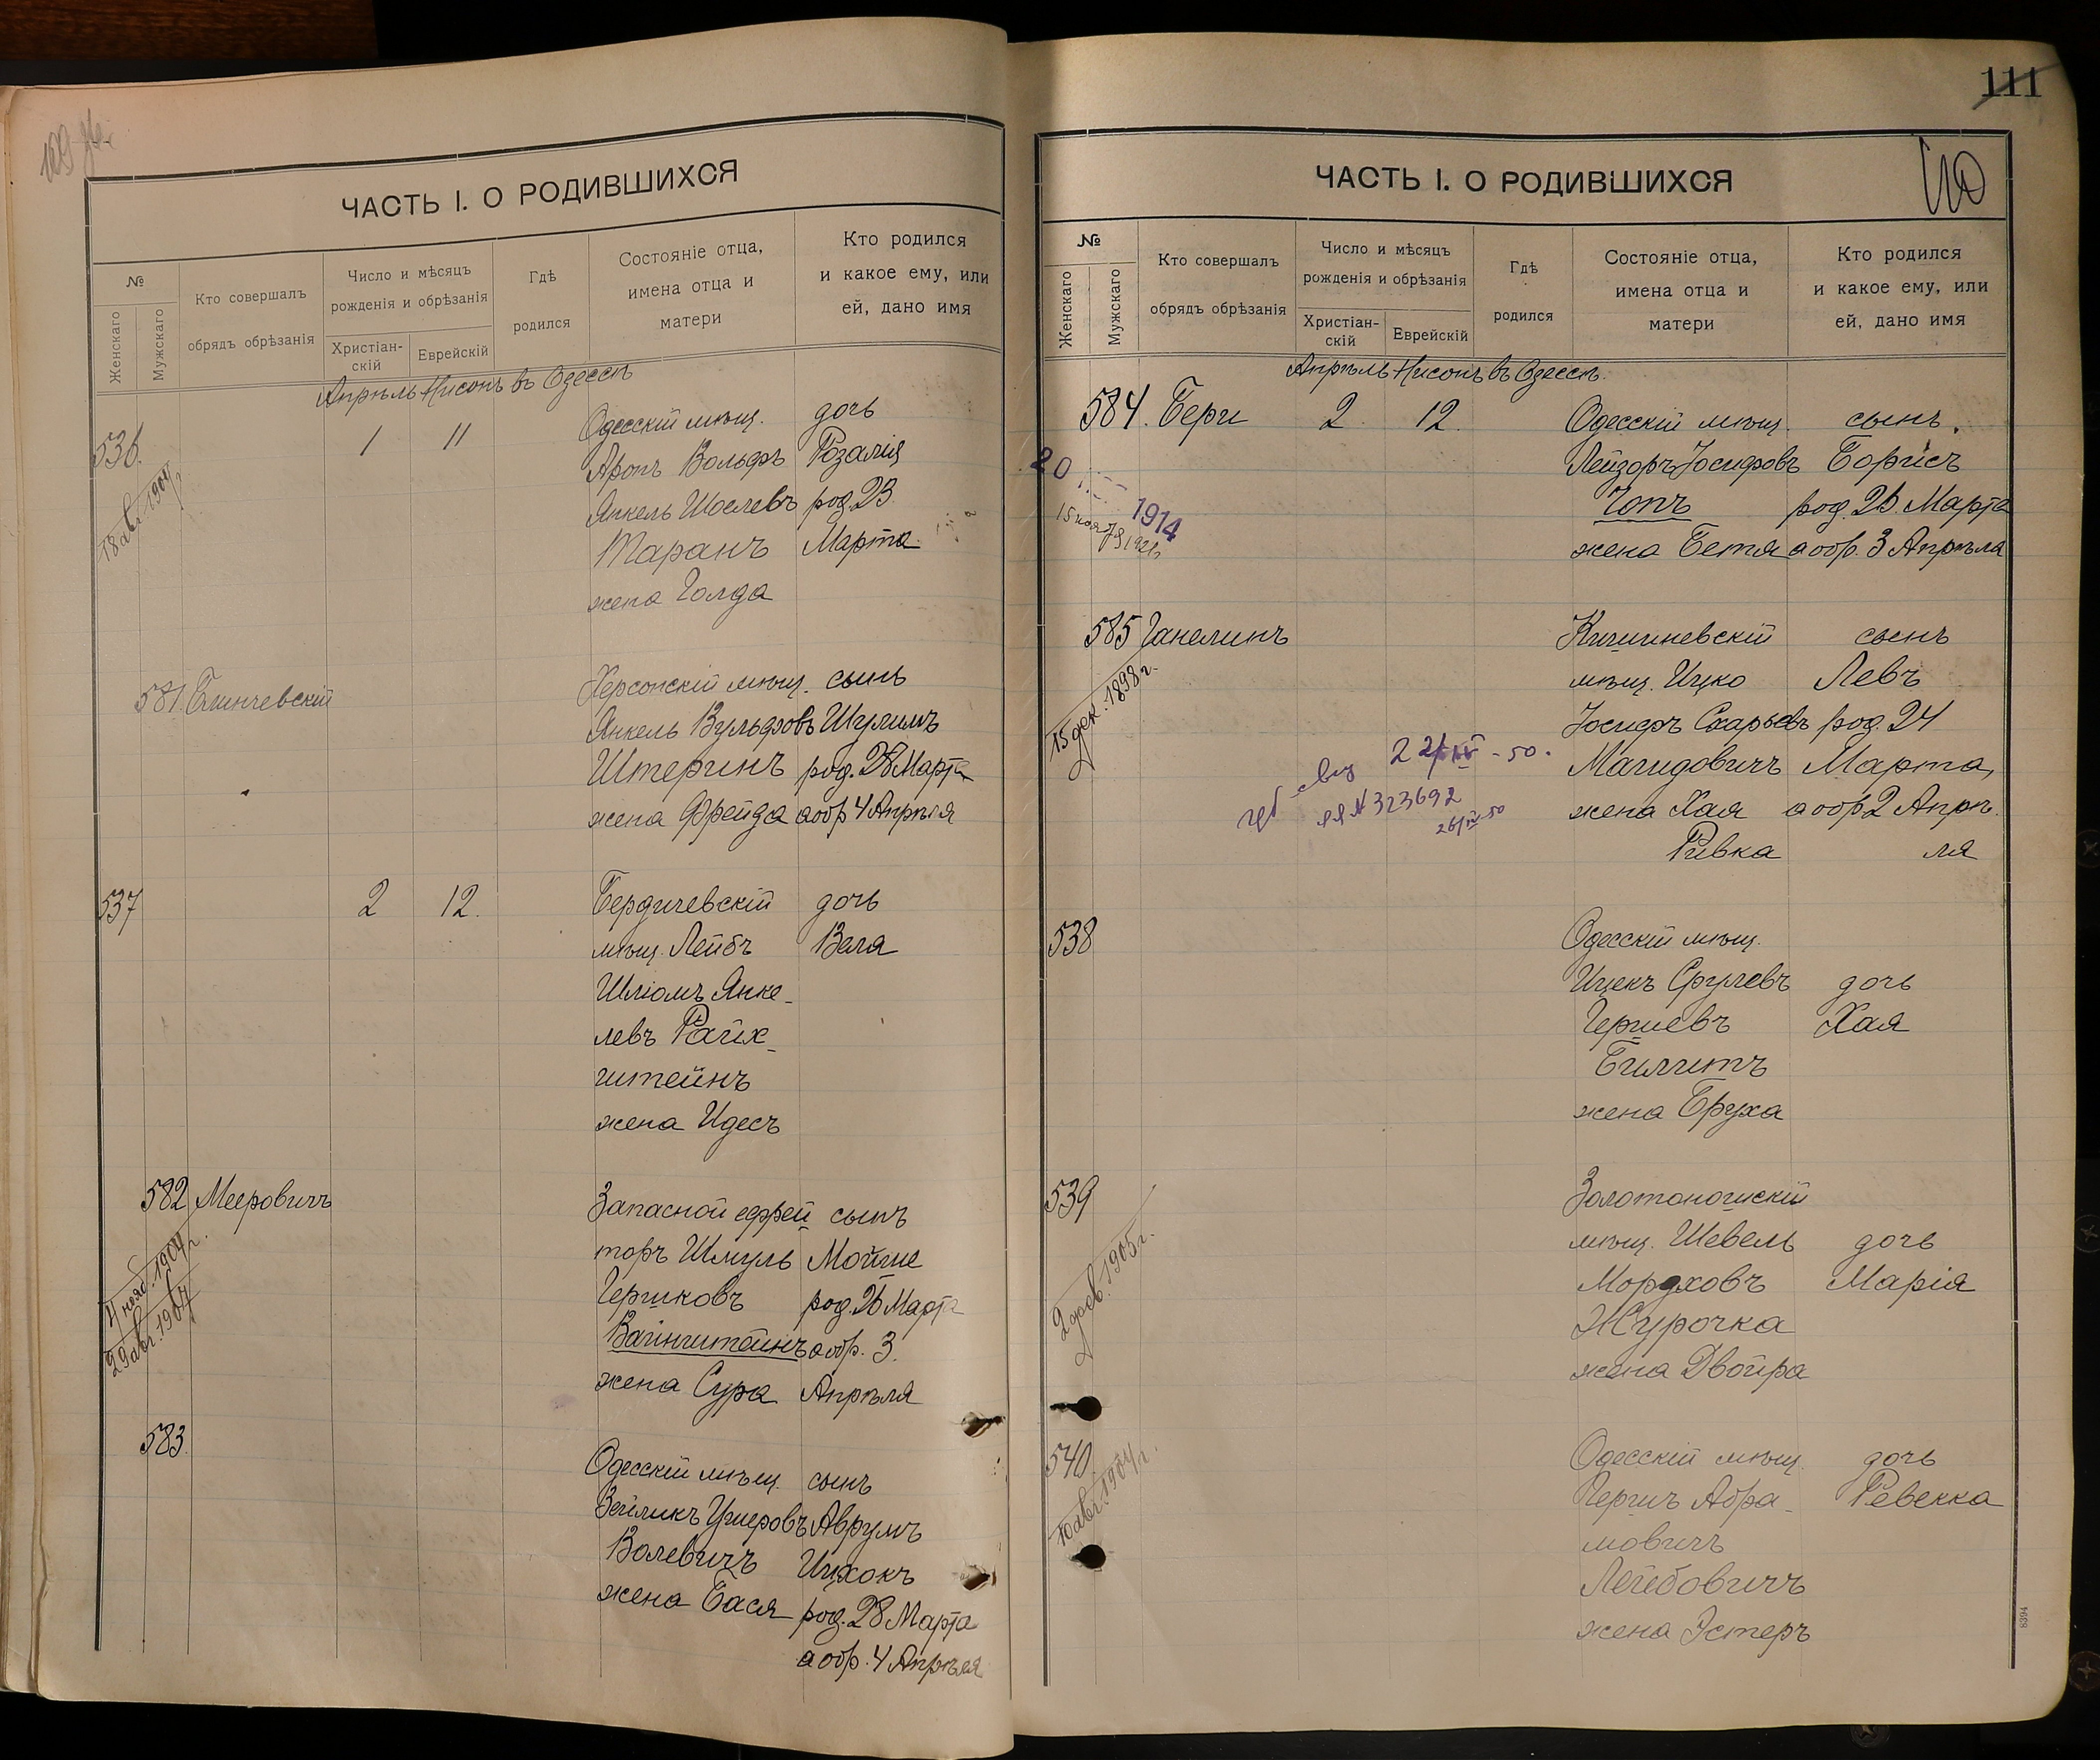 109 об.
ЧАСТЬ I. О РОДИВШИХСЯ
№
Женскаго
Мужскаго
Кто совершалъ
обрядъ обрѣзанія
Число и мѣсяцъ
рожденія и обрѣзанія
Христіан-
скій
Еврейскій
Гдѣ
родился
Состояніе отца,
имена отца и
матери
Кто родился
и какое ему, или
ей, дано имя
Апрѣль Нисонъ въ Одессѣ
536
18 авг. 1904 г.
1
11
Одесскій мѣщ.
Аронъ Вольфъ
Янкель Шоелевъ
Таранъ
жена Голда
дочь
Розалія
род. 23
Марта
581
Блинчевскій
Херсонскій мѣщ.
Янкель Вульфовъ
Штеринъ
жена Фрейда
сынъ
Шулимъ
род. 28 Марта
а обр 4 Апрѣля
537
2
12.
Бердичевскій
мѣщ. Лейбъ
Шліомъ Янке-
левъ Райх-
штейнъ
жена Идесъ
дочь
Веля
582
Мееровичъ
4 нояб. 1904 г.
29 авг. 1907
Запасной ефрей
торъ Шмуль
Гершковъ
Вайнштейнъ
жена Сура
сынъ
Мойше
род. 26 Марта
а обр. 3.
Апрѣля
583.
Одесскій мѣщ.
Зейликъ Ушеровъ
Волевичъ
жена Бася
сынъ
Аврумъ
Ицхокъ
род. 28 Марта
а обр. 4 Апрѣля
111
110
ЧАСТЬ I. О РОДИВШИХСЯ
№
Женскаго
Мужскаго
Кто совершалъ
обрядъ обрѣзанія
Число и мѣсяцъ
рожденія и обрѣзанія
Христіан-
скій
Еврейскій
Гдѣ
родился
Состояніе отца,
имена отца и
матери
Кто родился
и какое ему, или
ей, дано имя
Апрѣль Нисонъ въ Одессѣ.
584.
Бери
20
1914
2.
12.
Одесскій мѣщ.
Лейзоръ Іосифовъ
Чопъ
жена Бетя
сынъ.
Борисъ
род. 26 Марта
а обр. 3 Апрѣля
585
Ганелинъ
15 дек. 1898 г.
22/IV - 50.
ЯЯ № 323692
26/IV 50
Кишиневскій
мѣщ. Ицко
Іосифъ Схарьевъ
Магидовичъ
жена Хая
Ривка
сынъ
Левъ
род. 24
Марта,
а обр 2 Апрѣ
ля
538
Одесскій мѣщ.
Ицекъ Срулевъ
Гершевъ
Билитъ
жена Бруха
дочь
Хая
539
2 фев. 1905 г.
Золотоношскій
мѣщ. Шевель
Мордховъ
Журочка
жена Двойра
дочь
Марія
540
10 авг. 1904 г.
Одесскій мѣщ.
Гершъ Абра-
мовичъ
Лейбовичъ
жена Эстеръ
дочь
Ревекка
8394